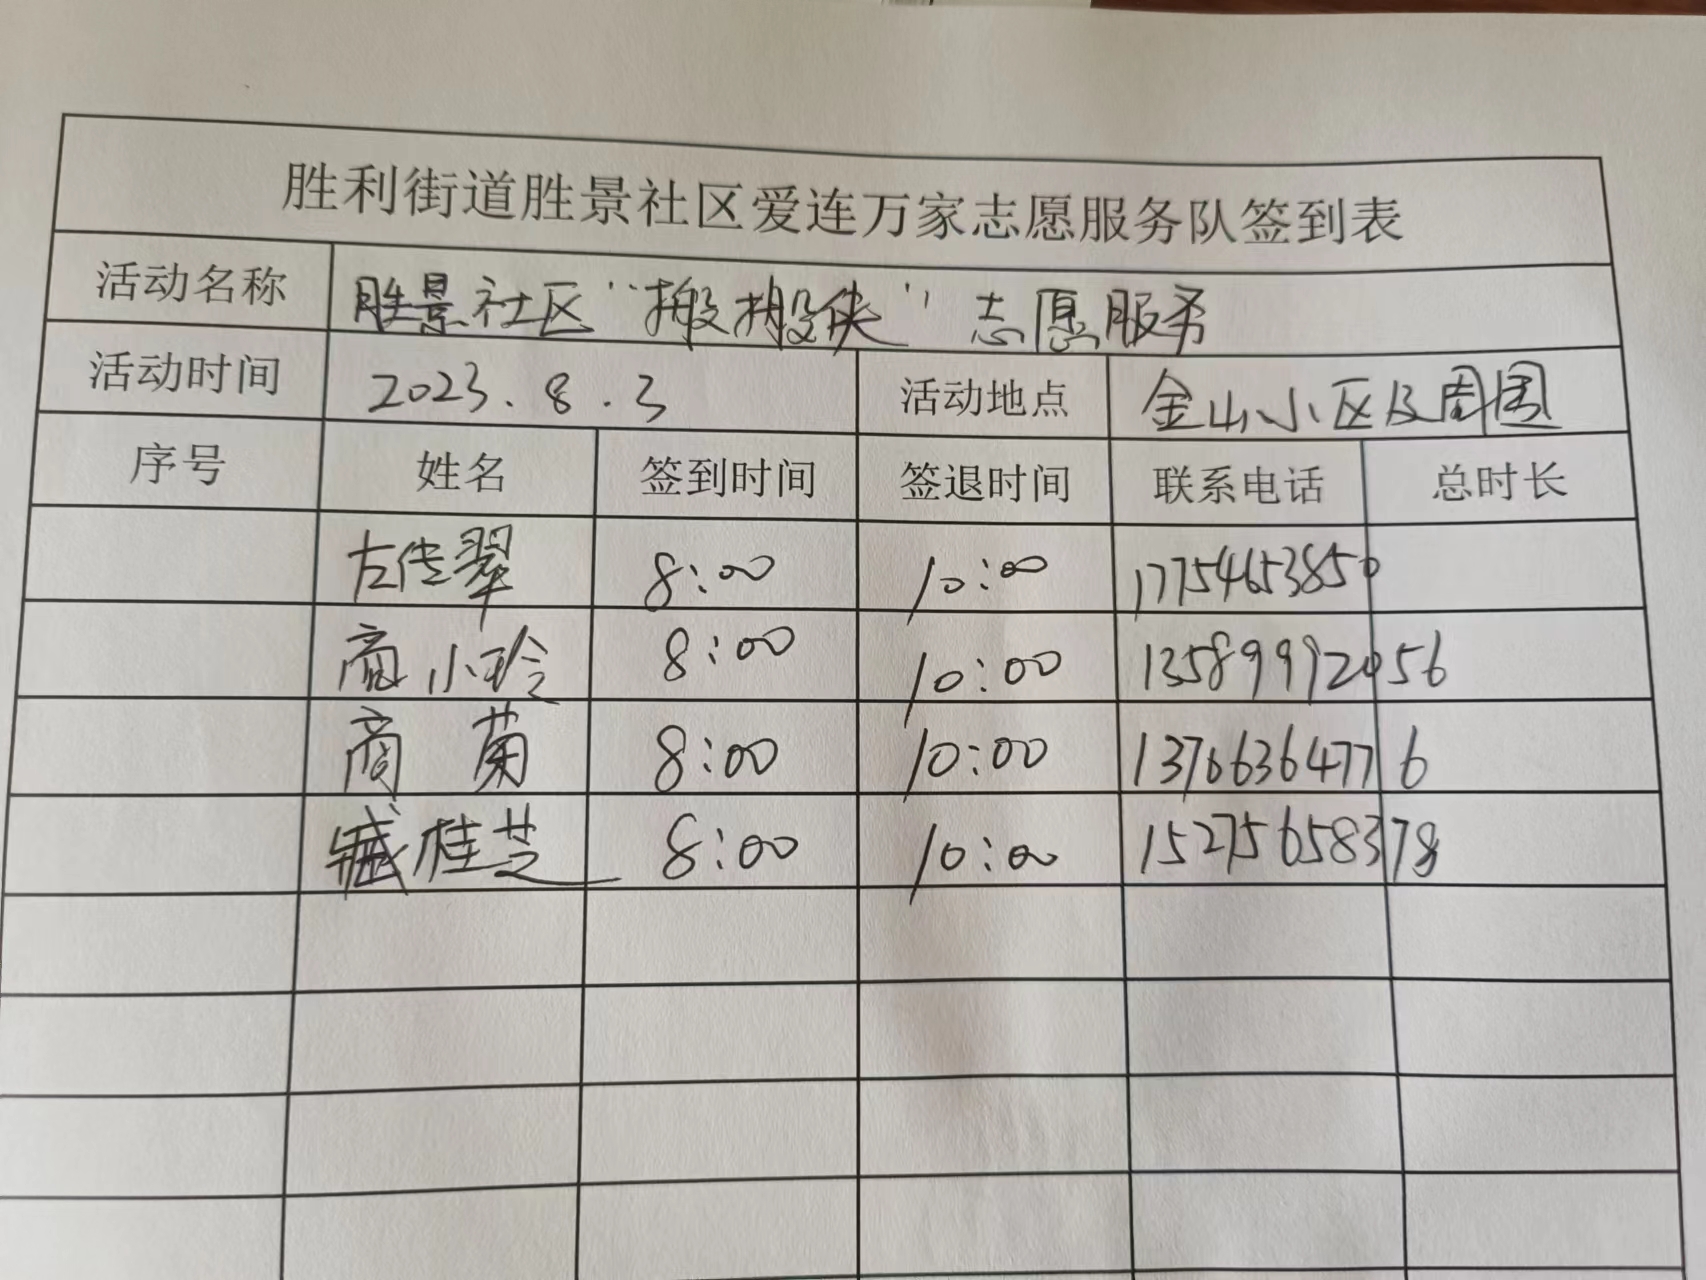 胜利街道胜景社区爱连万家志愿服务队签到表
活动名称 胜景社区“搬搬侠”志愿服务
活动时间 2023.8.3 活动地点 金山小区及周围
序号 姓名 签到时间 签退时间 联系电话 总时长
左传翠 8:00 10:00 17754653850
商小玲 8:00 10:00 13589992056
商菊 8:00 10:00 13766364776
臧桂芝 8:00 10:00 15275658378